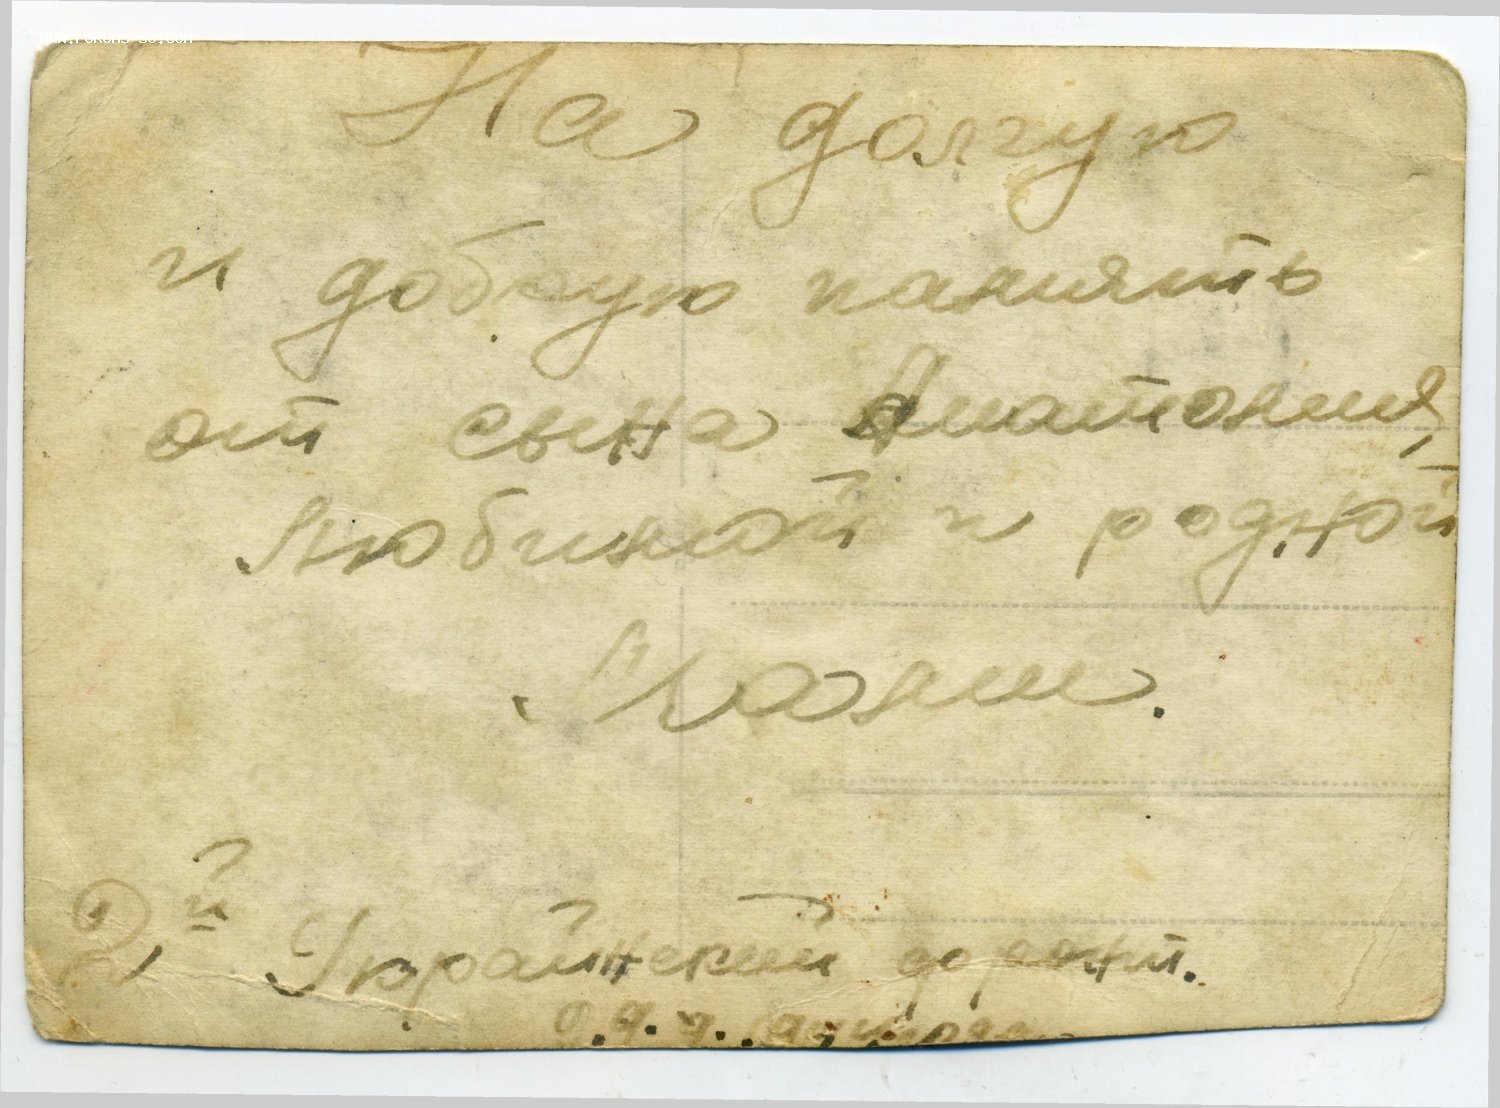 На долгую
и добрую память
от сына Анатолия,
Любимой и родной
Маме.
2й Украйнский фронт.